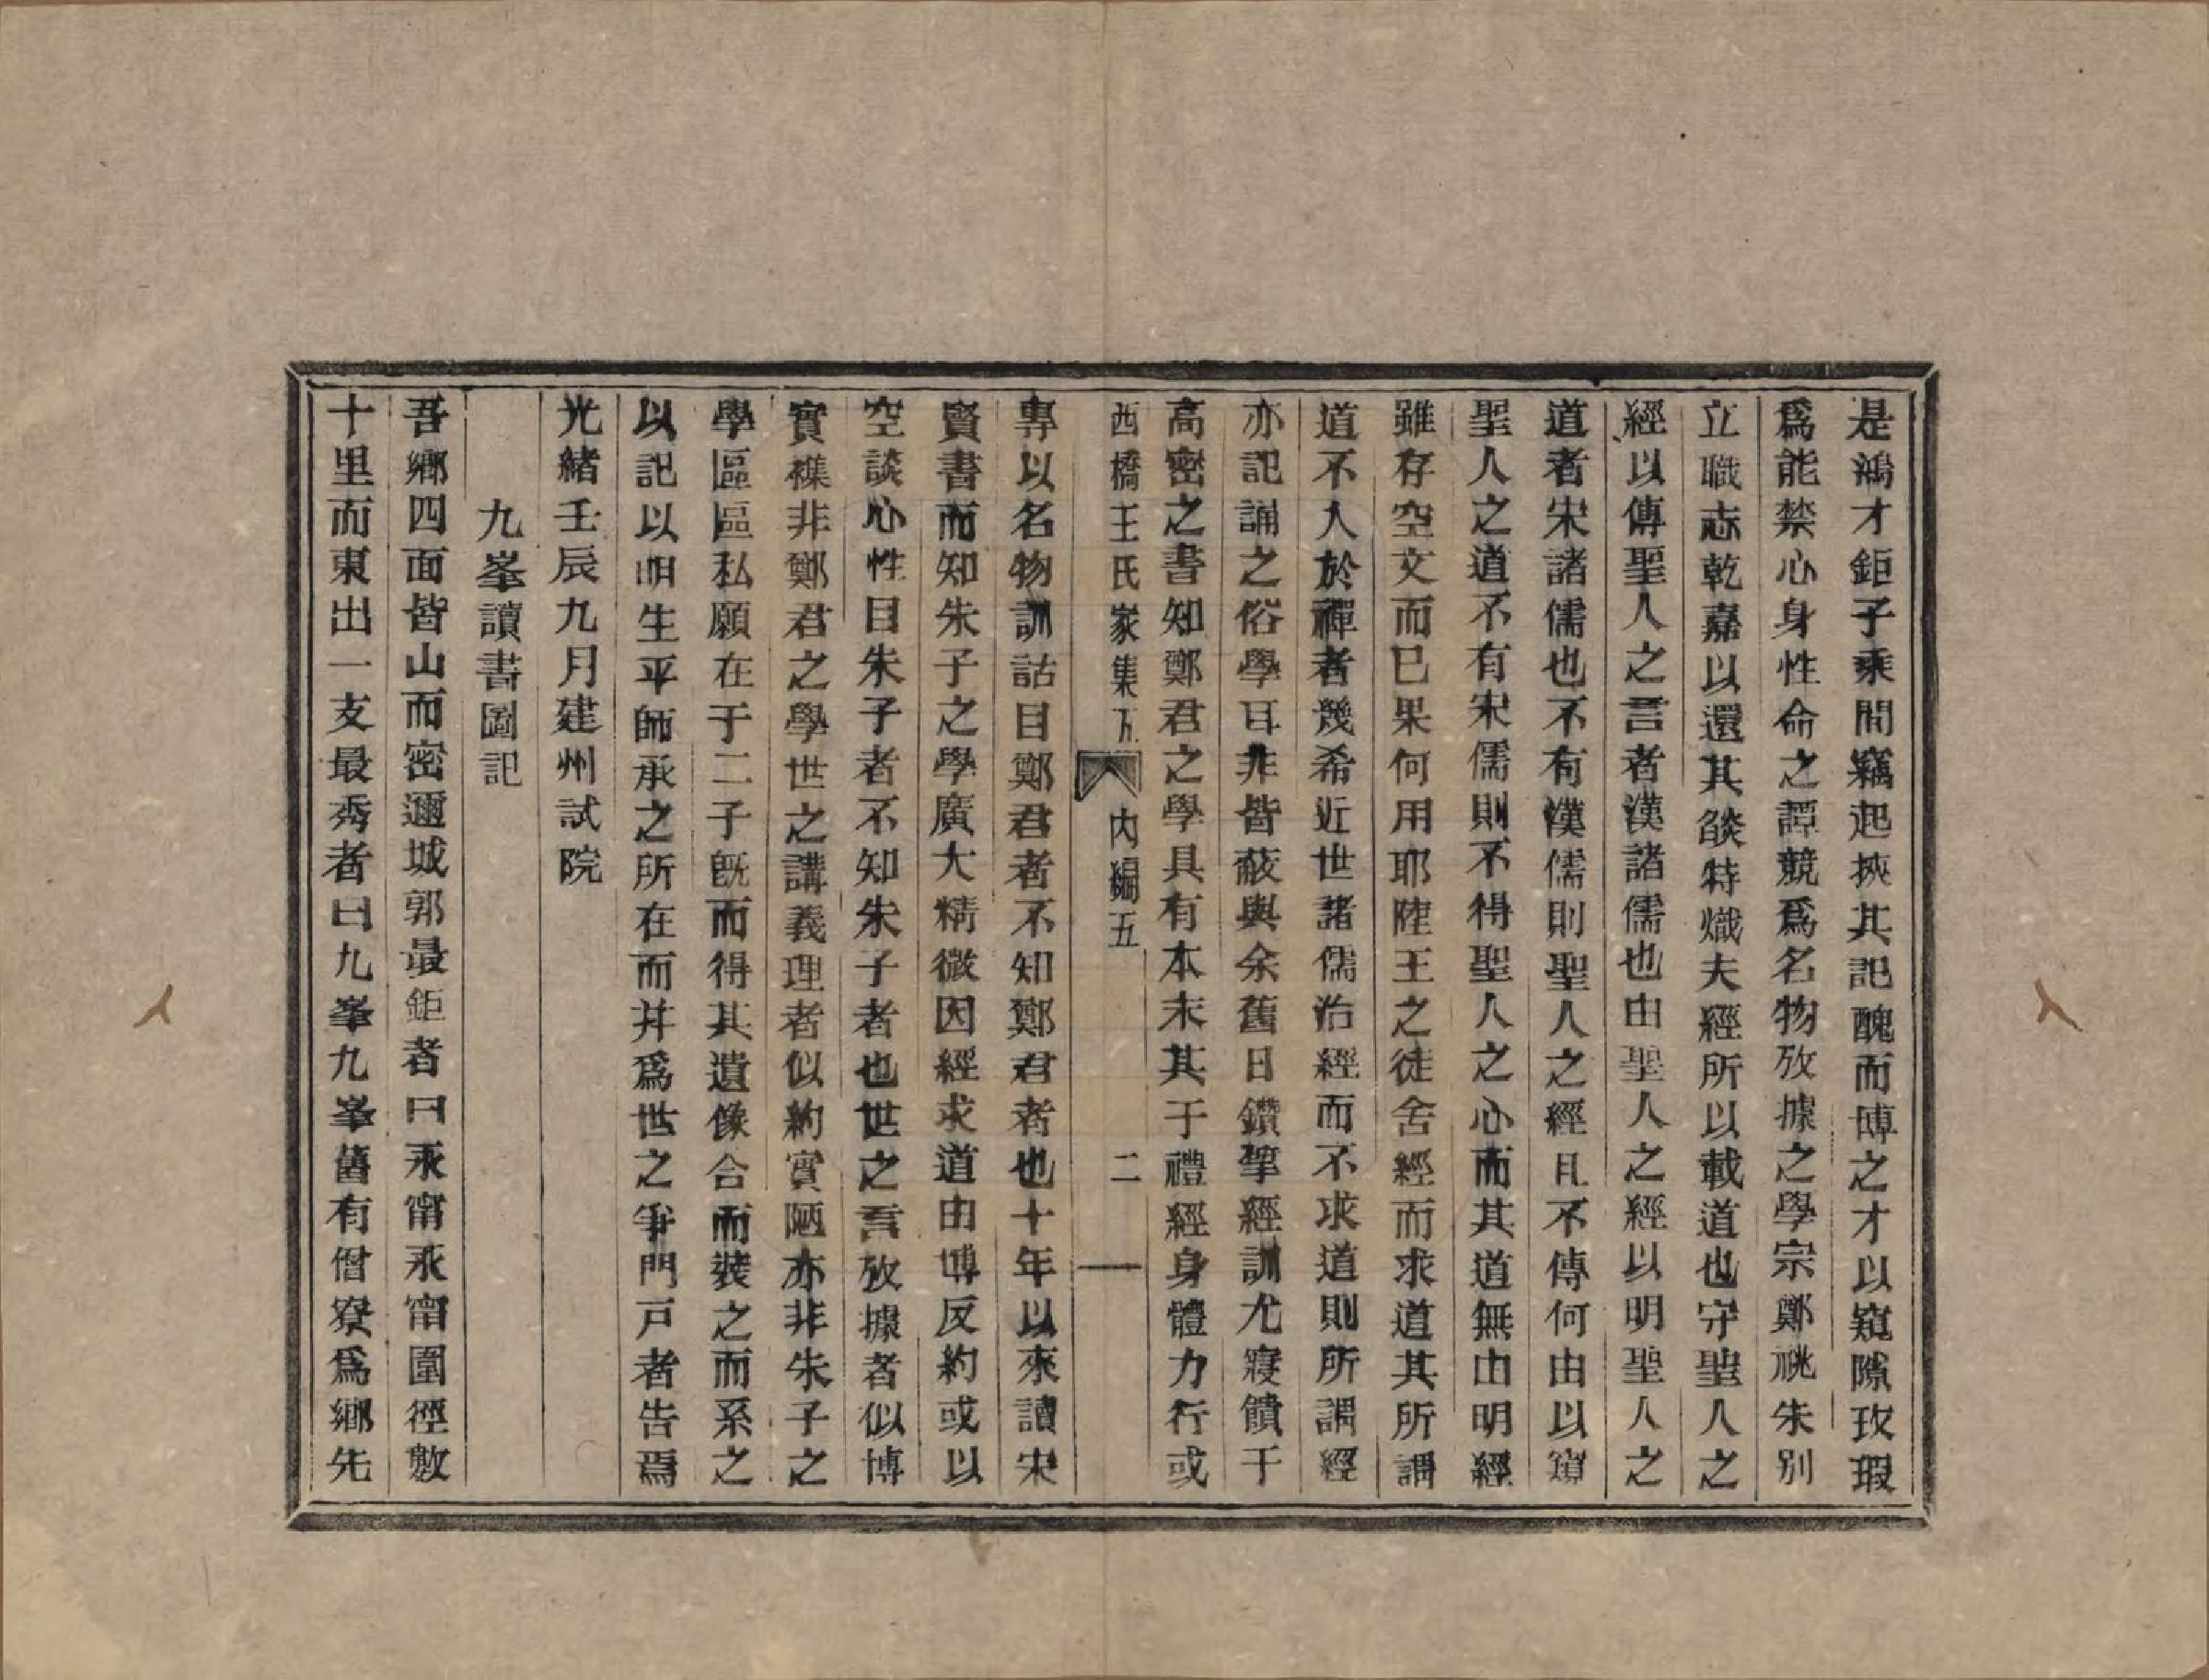 是鴻才鉅子乘間竊起挾其記醜而博之才以窺隙攻瑕
爲能禁心身性命之譚競爲名物攷據之學宗鄭祧朱別
立職志乾嘉以還其燄特熾夫經所以載道也守聖人之
經以傳聖人之言者漢諸儒也由聖人之經以明聖人之
道者宋諸儒也不有漢儒則聖人之經且不傳何由以窺
聖人之道不有宋儒則不得聖人之心而其道無由明經
雖存空文而已果何用耶陸王之徒舍經而求道其所謂
道不入於禪者幾希近世諸儒治經而不求道則所謂經
亦記誦之俗學耳非皆蔽與余舊日鑽揅經訓尤寢饋于
高密之書知鄭君之學具有本末其于禮經身體力行或
西橋王氏家集 內編五 二
專以名物訓詁目鄭君者不知鄭君者也十年以來讀宋
賢書而知朱子之學廣大精微因經求道由博反約或以
空談心性目朱子者不知朱子者也世之言攷據者似博
實襍非鄭君之學世之講義理者似約實陋亦非朱子之
學區區私願在于二子既而得其遺像合而裝之而系之
以記以明生平師承之所在而幷爲世之爭門戸者告焉
光緒壬辰九月建州試院
九峯讀書圖記
吾鄉四面皆山而密邇城郭最鉅者曰永甯永甯圍徑數
十里而東出一支最秀者曰九峯九峯舊有僧寮爲鄉先